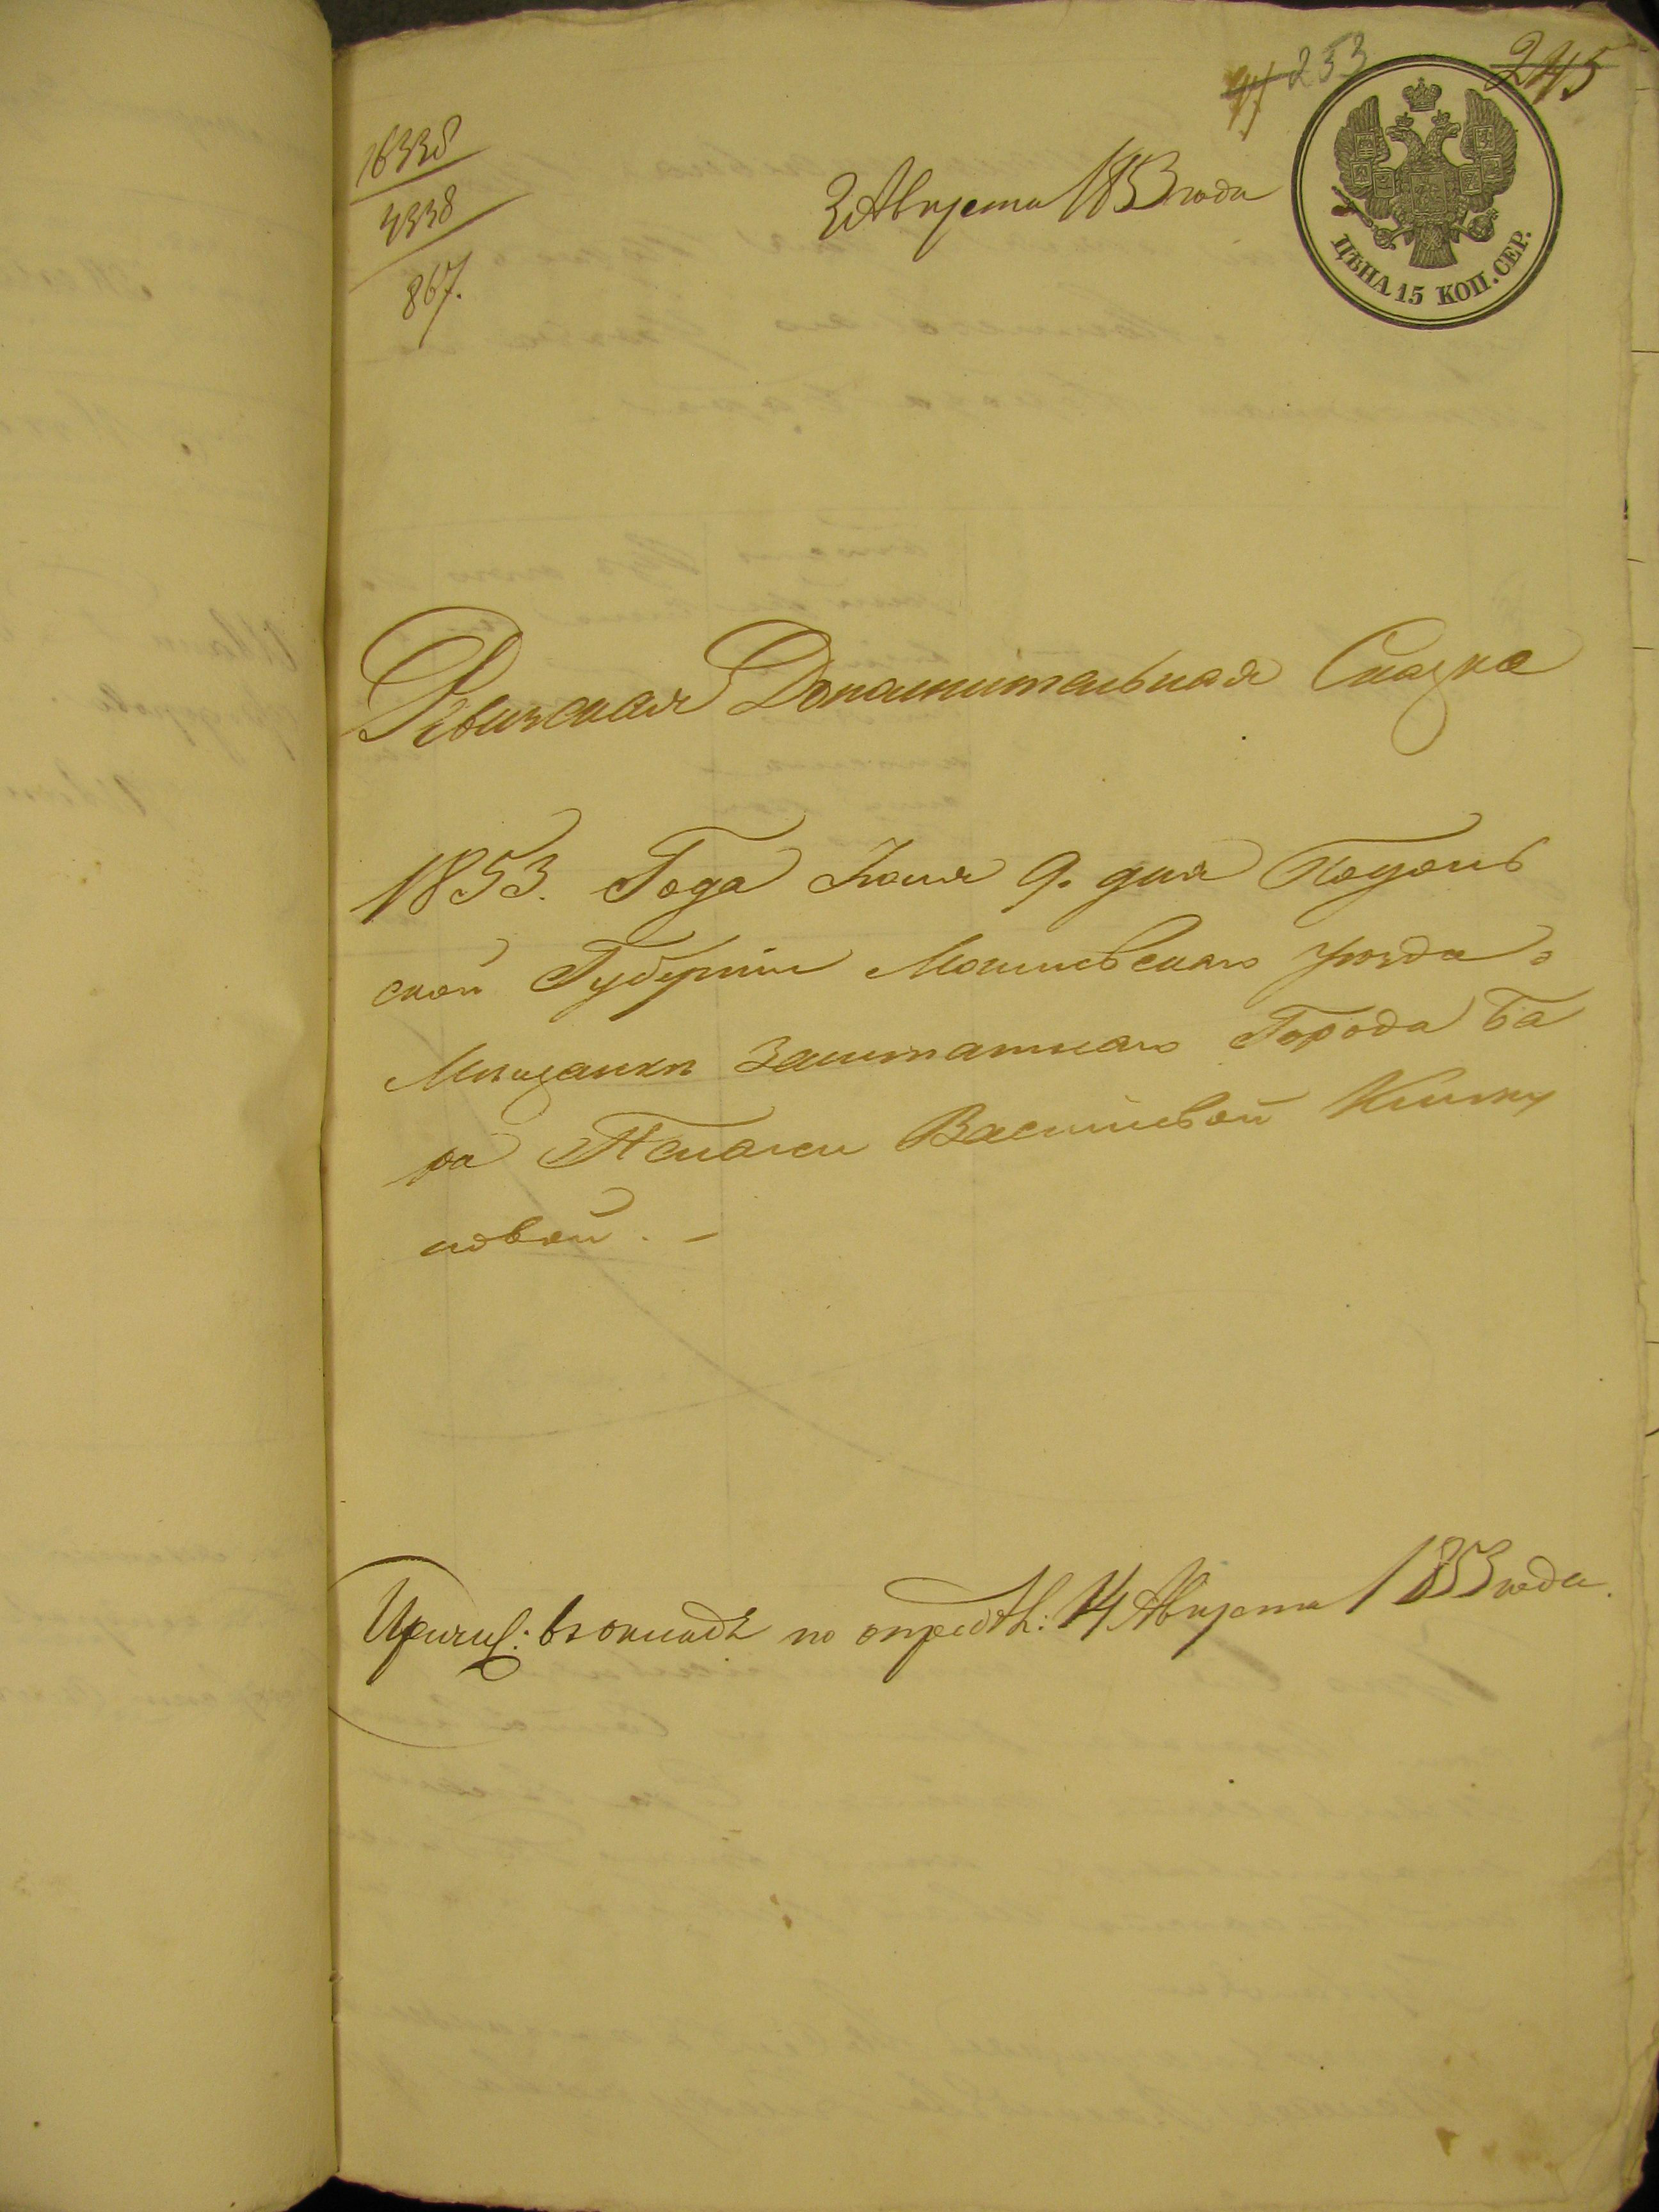 253
245
16338
4338
867.
3 Августа 1853 года
ЦѢНА 15 КОП. СЕР.
Ревизская Дополнительная Сказка
1853. Года Іюня 9. дня Подоль
ской Губерніи Могилевскаго уѣзда
Мѣщанки Заштатнаго Города Ба
ра Пелагеи Васильевой
новой. –
Причис: въ окладъ по опредѣл: 14 Августа 1853 года.